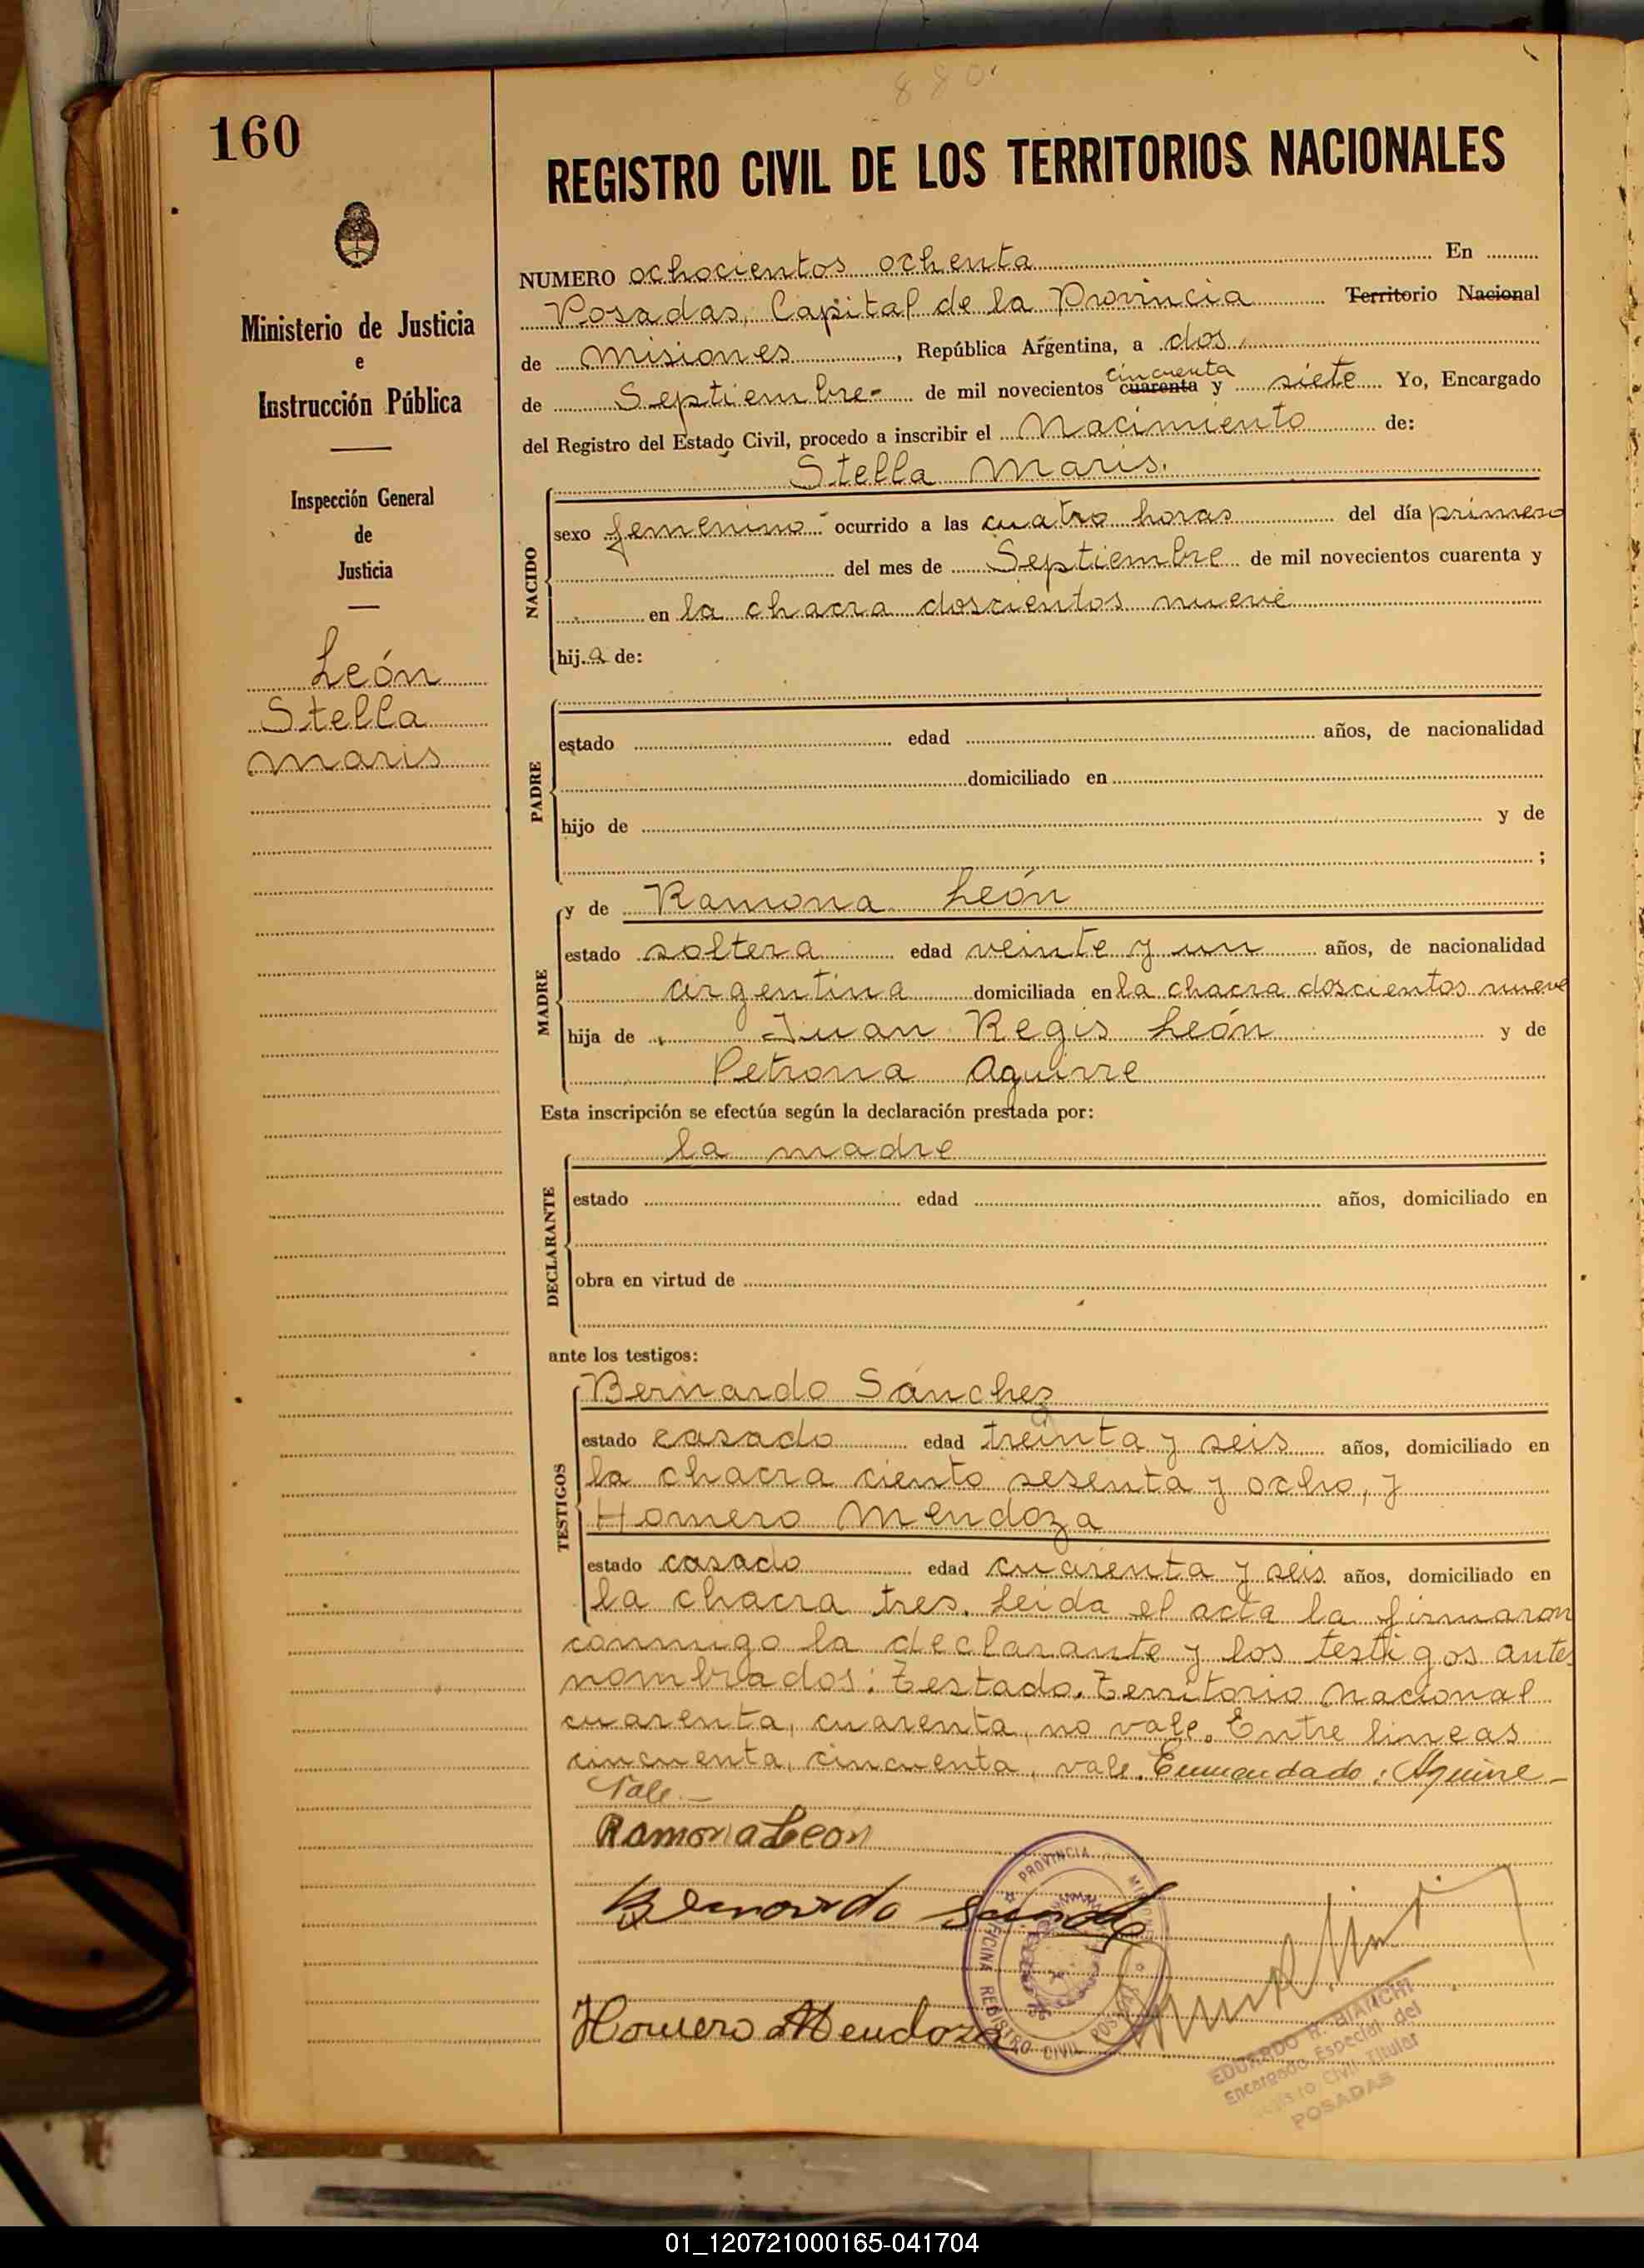 880
160
REGISTRO CIVIL DE LOS TERRITORIOS NACIONALES
Ministerio de Justicia
e
Instrucción Pública
Inspección General
de
Justicia
León
Stella
Maris
NUMERO ochocientos ochenta En
Posadas, Capital de la Provincia Territorio Nacional
de Misiones, República Argentina, a dos
cincuenta
de Septiembre- de mil novecientos cuarenta y siete Yo, Encargado
del Registro del Estado Civil, procedo a inscribir el Nacimiento de:
Stella Maris.
NACIDO
sexo femenino ocurrido a las cuatro horas del día primero
del mes de Septiembre de mil novecientos cuarenta y
en la chacra doscientos nueve
hija de:
PADRE
estado edad años, de nacionalidad
domiciliado en
hijo de y de
;
MADRE
y de Ramona León
estado soltera edad veinte y un años, de nacionalidad
argentina domiciliada en la chacra doscientos nueve
hija de Juan Regis León y de
Petrona Aguirre
Esta inscripción se efectúa según la declaración prestada por:
la madre
DECLARANTE
estado edad años, domiciliado en
obra en virtud de
ante los testigos:
TESTIGOS
Bernardo Sánchez
estado casado edad treinta y seis años, domiciliado en
la chacra ciento sesenta y ocho, y
Homero Mendoza
estado casado edad cuarenta y seis años, domiciliado en
la chacra tres. Leída el acta la firmaron
conmigo la declarante y los testigos antes
nombrados: Testado. Territorio Nacional
cuarenta, cuarenta, no vale. Entre lineas
cincuenta, cincuenta, vale. Enmendado: Aguirre-
Vale.-
Ramona Leon
Bernardo Sanchez
Homero Mendoza
PROVINCIA MISIONES
OFICINA REGISTRO CIVIL POSADAS
EDUARDO R. BIANCHI
Encargado Especial del
Registro Civil Titular
POSADAS
01_120721000165-041704